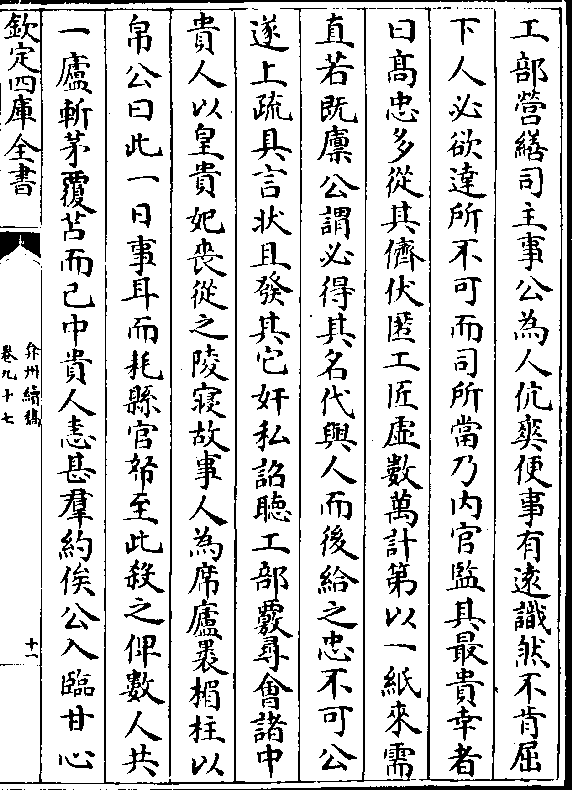 工部營繕司主事公為人伉爽便事有遠識然不肯屈
下人必欲達所不可而司所當乃内官監其最貴幸者
曰髙忠多從其儕伏匿工匠虚數萬計第以一紙來需
直若既廪公謂必得其名代與人而後給之忠不可公
遂上疏具言状且發其它奸私詔聴工部覈尋會諸中
貴人以皇貴妃喪從之陵寝故事人為席廬裹楣柱以
帛公曰此一日事耳而耗縣官帑至此殺之俾數人共
一廬斬茅覆苫而已中貴人恚甚羣約俟公入臨甘心
欽定四庫全書
弇州續稿
卷九十七
十一